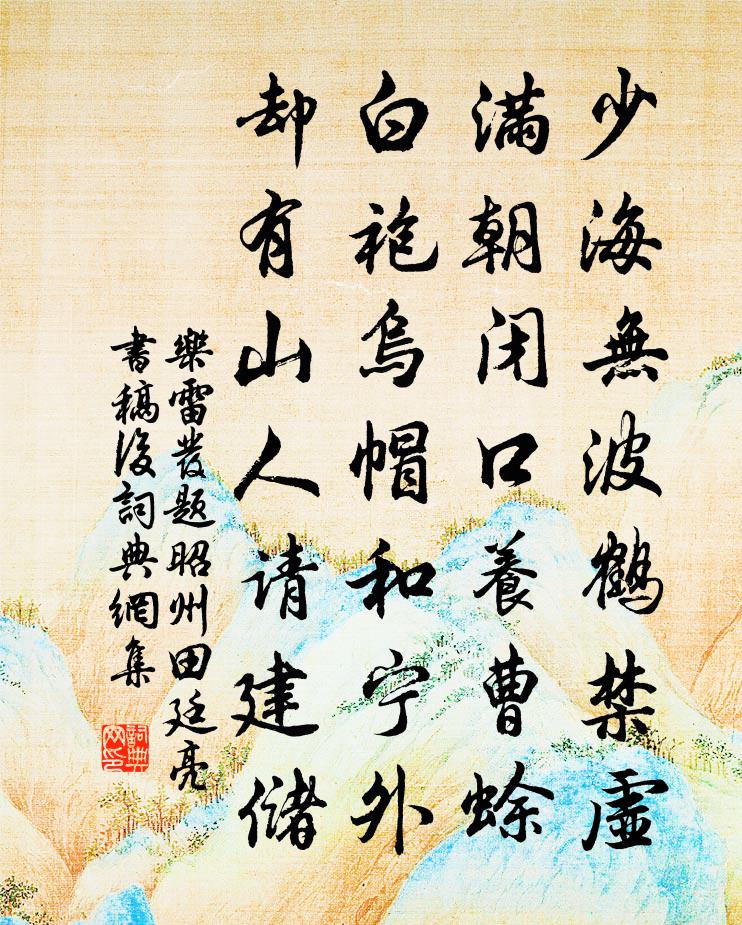 少海無波鶴禁虛
滿朝閉口養曹蜍
白袍烏帽和宁外
却有山人请建儲
樂雷發题昭州田廷亮
書稿後詞典網集
詞典
网印